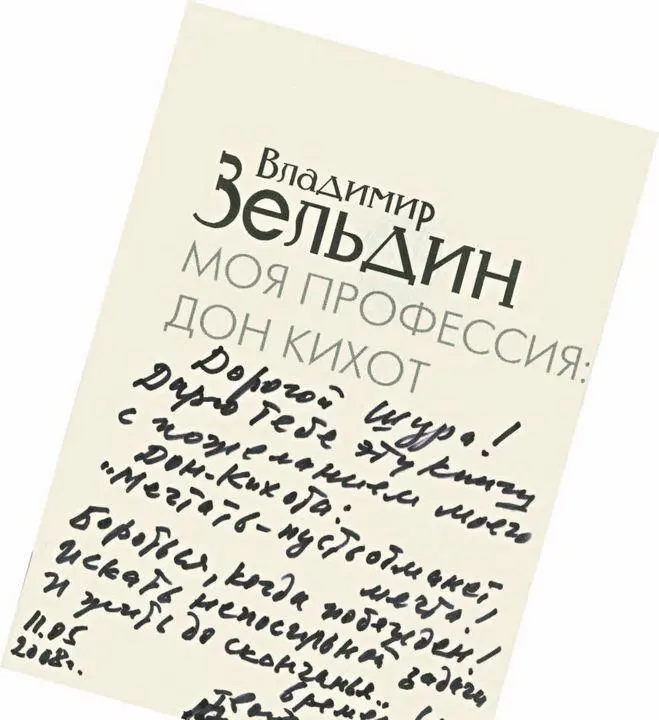 Владимир
Зельдин
МОЯ ПРОФЕССИЯ:
ДОН КИХОТ
Дорогой Шура!
Дарю Тебе эту книгу
с пожеланием моего
Дон-Кихота:
"Мечтать - пусть обманет
мечта!
Бороться, когда побежден!
искать непосильной задачи
и жить до скончанья..
времен
11.05
2008г.